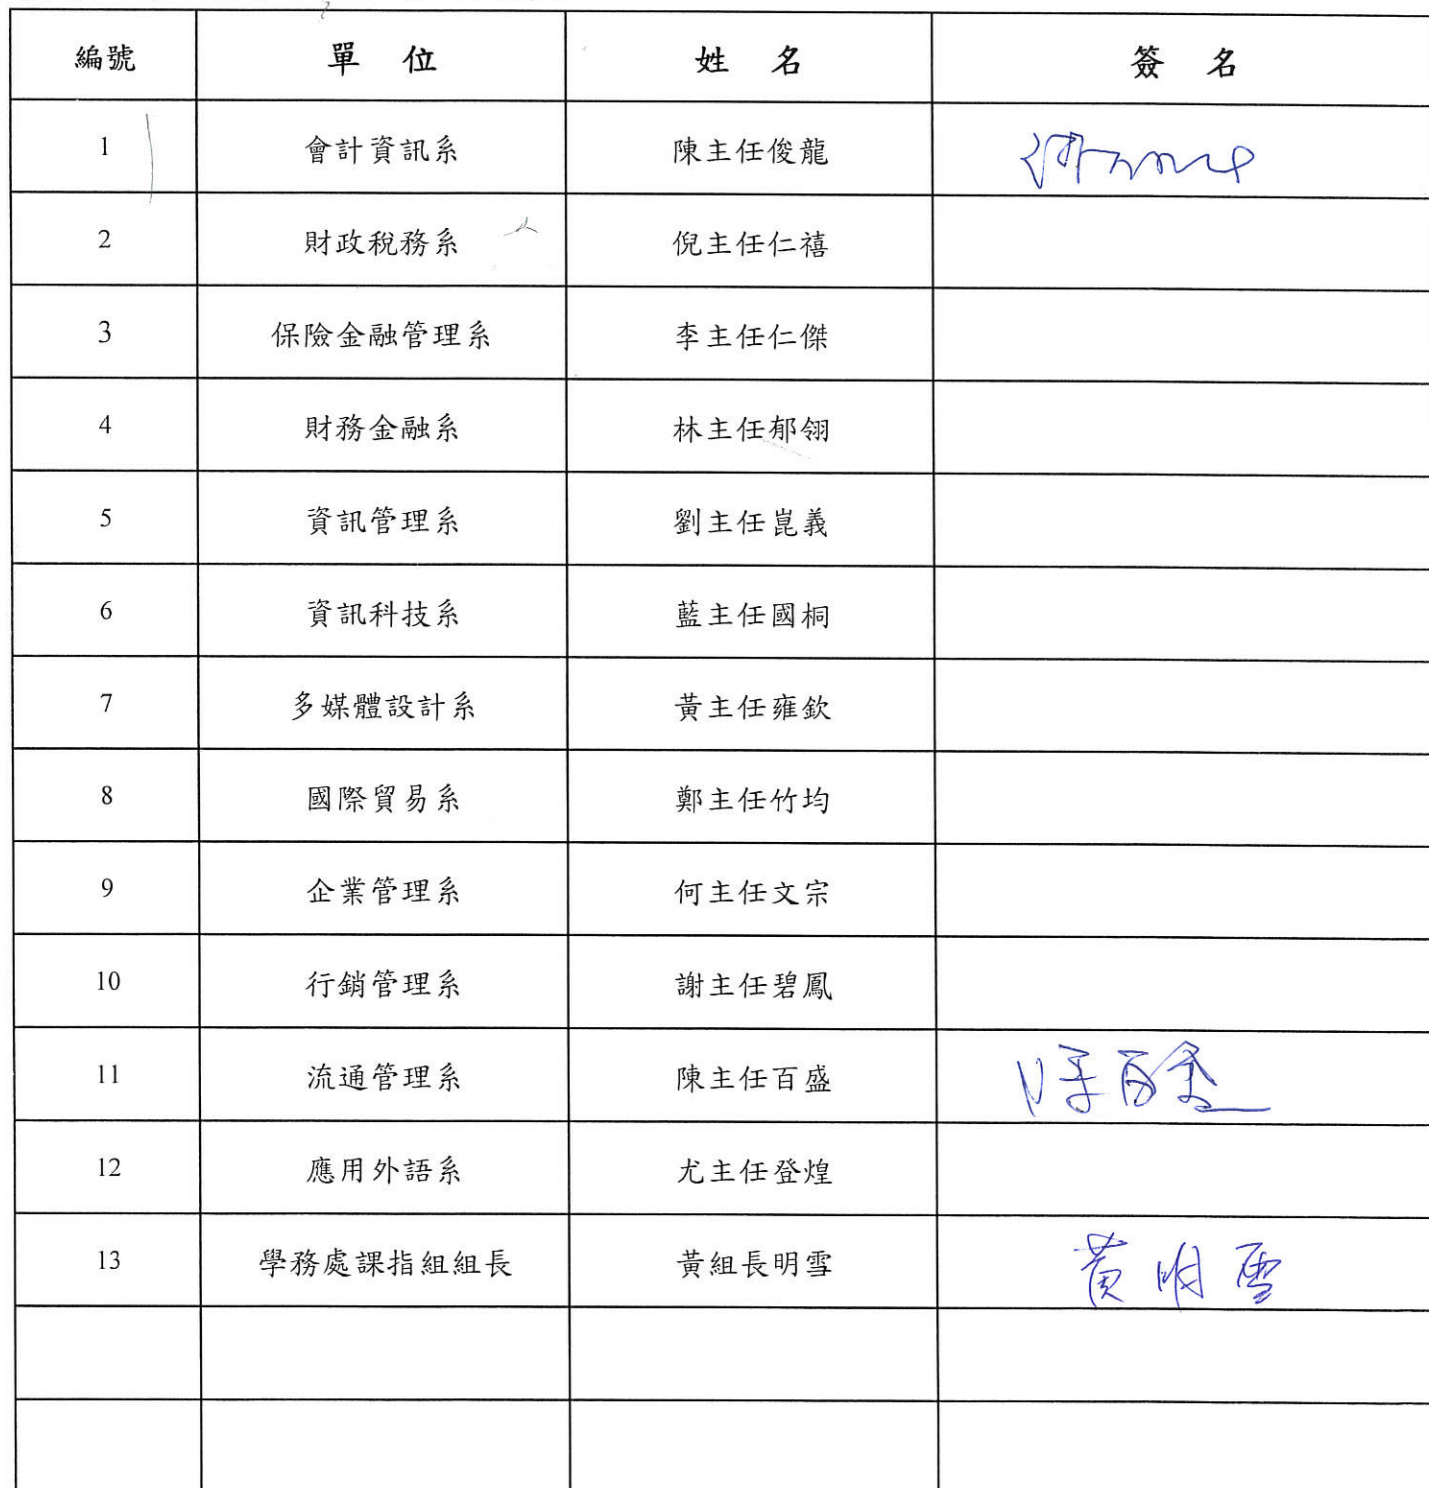 編號 單 位 姓 名 簽 名
1 會計資訊系 陳主任俊龍
2 財政稅務系 倪主任仁禧
3 保險金融管理系 李主任仁傑
4 財務金融系 林主任郁翎
5 資訊管理系 劉主任崑義
6 資訊科技系 藍主任國桐
7 多媒體設計系 黃主任雍欽
8 國際貿易系 鄭主任竹均
9 企業管理系 何主任文宗
10 行銷管理系 謝主任碧鳳
11 流通管理系 陳主任百盛
12 應用外語系 尤主任登煌
13 學務處課指組組長 黃組長明雪 黃明雪